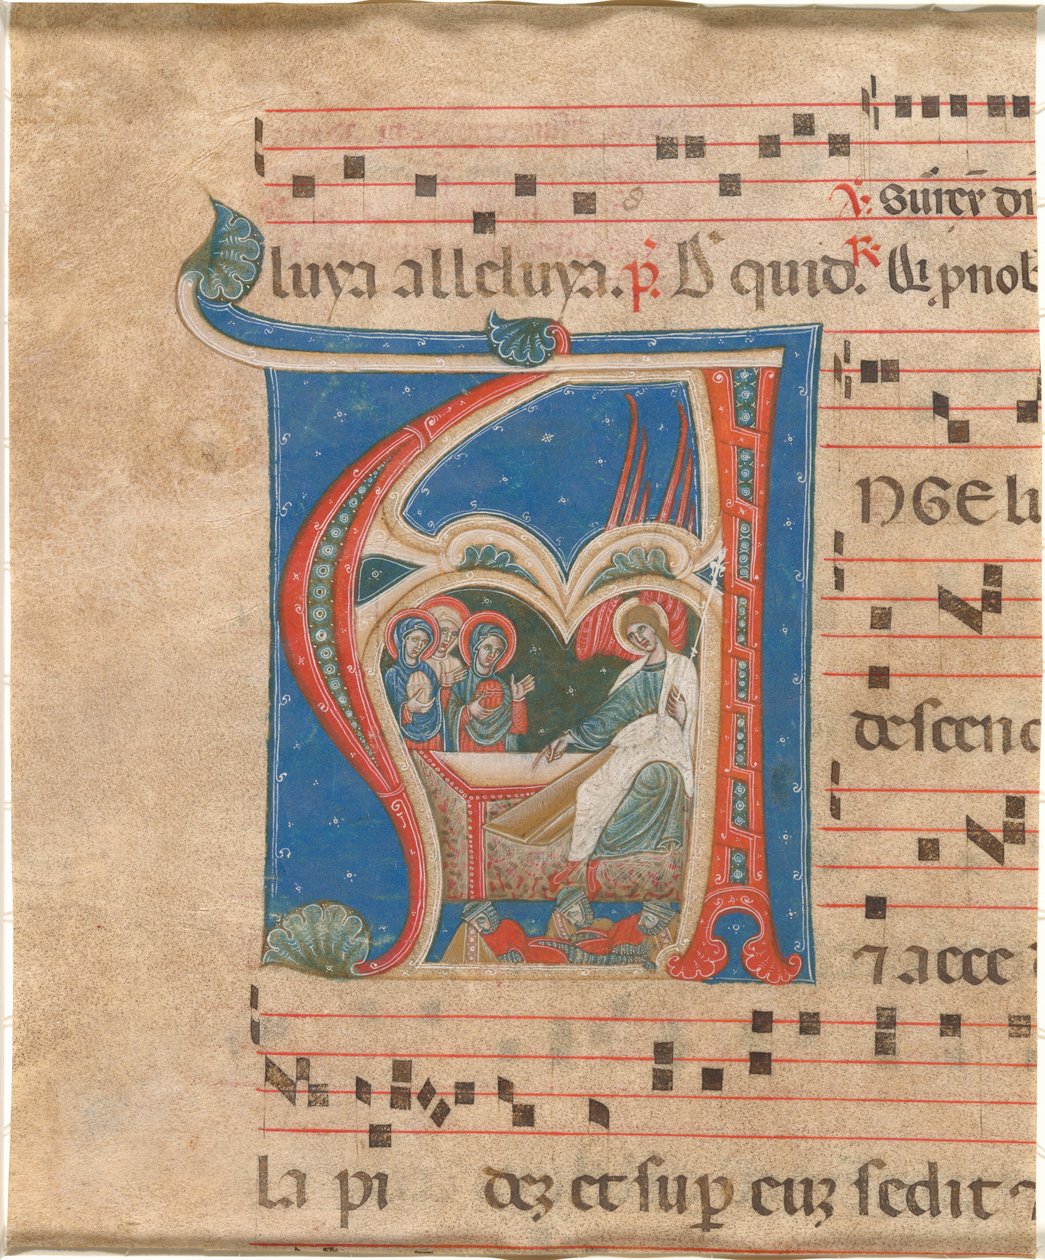 ℣. Surrex̄ dn̄
luya alleluya. p̄. A quid. ℟. Qi pnob
ANGElu
descen
⁊ acce
la pi deʒ et suꝑ euʒ sedit ⁊